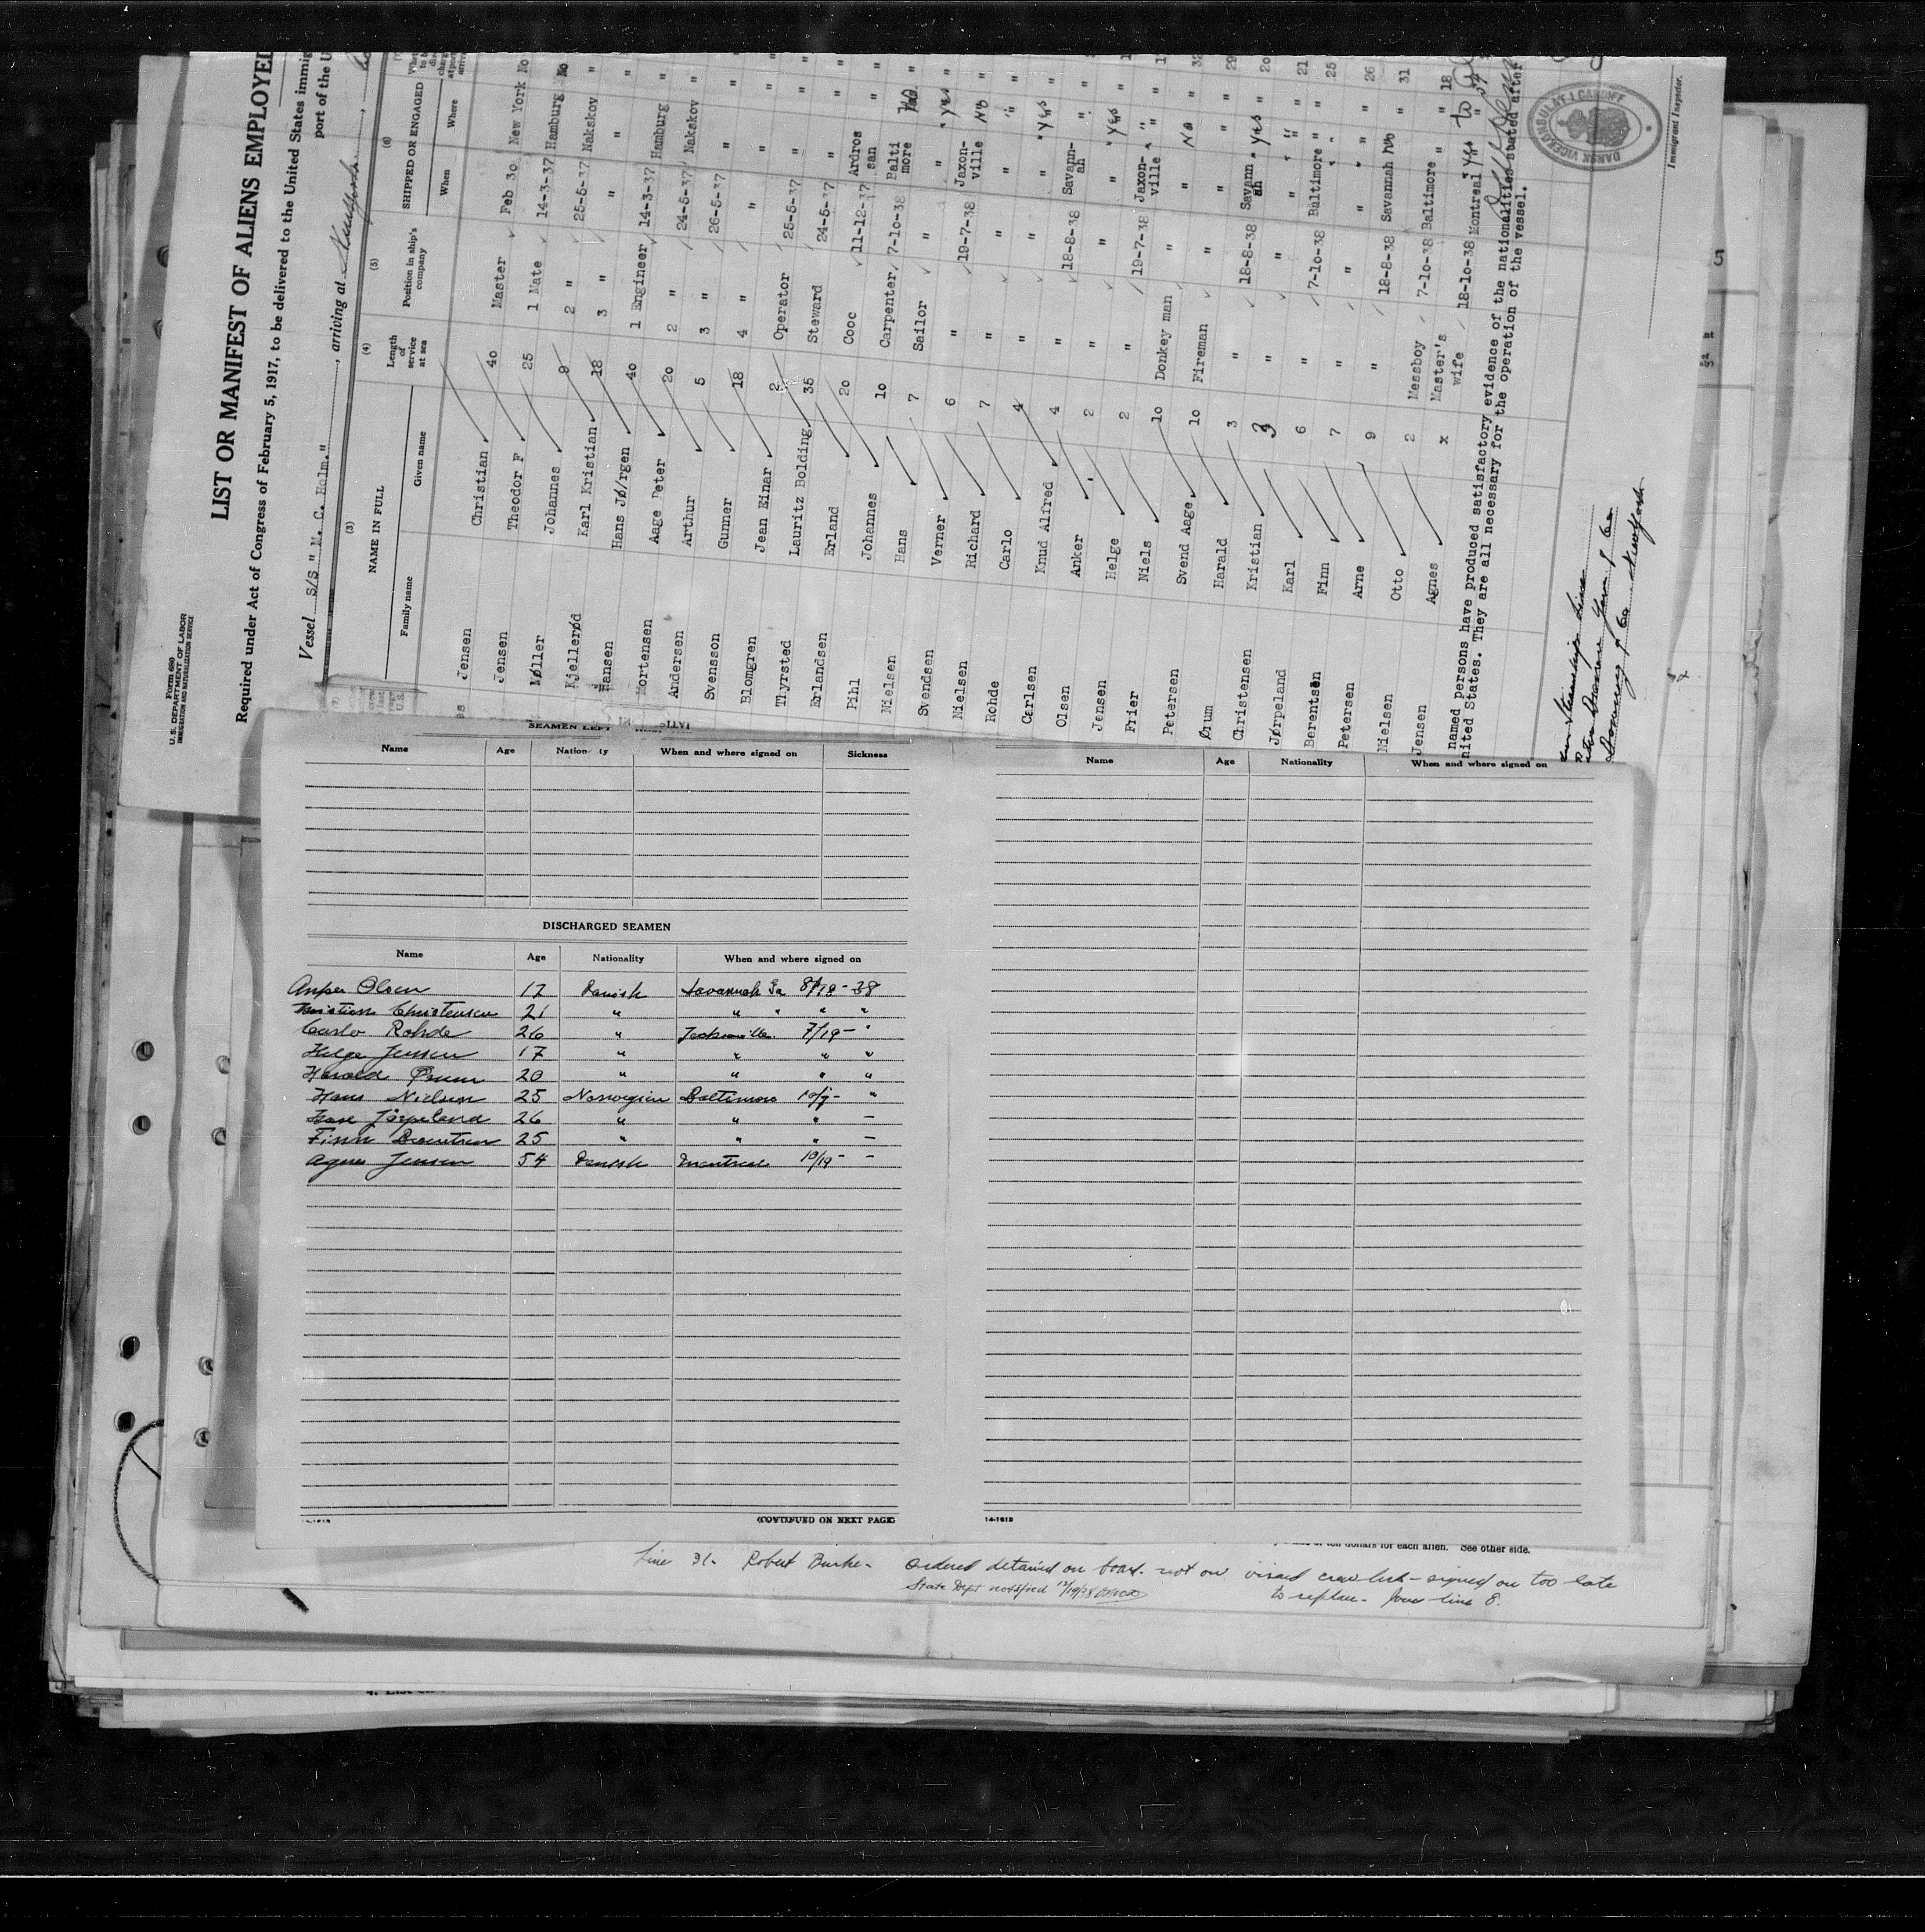 Form 680
U. S. DEPARTMENT OF LABOR
IMMIGRATION AND NATURALIZATION SERVICE
LIST OR MANIFEST OF ALIENS EMPLOYED
Required under Act of Congress of February 5, 1917, to be delivered to the United States immig
port of the U
Vessel S/S " N. C. Holm." , arriving at
(3) (4) (5) (6)
NAME IN FULL Length of service at sea Position in ship's company SHIPPED OR ENGAGED
Family name Given name When Where
Jensen Christian 40 Master Feb 30 New York No
Jensen Theodor F 25 1 Mate 14-3-37 Hamburg No
Møller Johannes 9 2 " 25-5-37 Nakskov "
Kjellerød Karl Kristian 18 3 " " " "
Hansen Hans Jø/rgen 40 1 Engineer 14-3-37 Hamburg "
Mortensen Aage Peter 20 2 " 24-5-37 Nakskov "
Andersen Arthur 5 3 " 26-5-37 " "
Svensson Gunner 18 4 " " " "
Blomgren Jean Einar 2 Operator 25-5-37 " "
Thyrsted Lauritz Bolding 35 Steward 24-5-37 " "
Erlandsen Erland 20 Cooc 11-12-37 Ardros san "
Pihl Johannes 10 Carpenter 7-10-38 Balti more
Nielsen Hans 7 Sailor " " " Yes
Svendsen Verner 6 " 19-7-38 Jaxon-ville No "
Nielsen Richard 7 " " " " "
Rohde Carlo 4 " " " " Yes "
Carlsen Knud Alfred 4 " 18-8-38 Savann-ah " "
Olsen Anker 2 " " " " Yes "
Jensen Helge 2 " 19-7-38 Jaxon-ville " "
Frier Niels 10 Donkey man " " No "
Petersen Svend Aage 10 Fireman " " "
Ørum Harald 3 " 18-8-38 Savann ah " Yes "
Christensen Kristian 3 " " " " "
Jørpeland Karl 6 " 7-10-38 Baltimore " "
Berentsen Finn 7 " " " " "
Petersen Arne 9 " 18-8-38 Savannah No "
Nielsen Otto 2 Messboy 7-10-38 Baltimore " "
Jensen Agnes x Master's wife 18-10-38 Montreal Yes
named persons have produced satisfactory evidence of the nationalities stated after
nited States. They are all necessary for the operation of the vessel.
DANSK VICEKONSULAT I CARDIFF
Immigrant Inspector.
SEAMEN LEFT
Name Age Nationality When and where signed on Sickness
Name Age Nationality When and where signed on
DISCHARGED SEAMEN
Name Age Nationality When and where signed on
Anker Olsen 17 Danish Savannah Ga 8/18 - 38
Kristian Christensen 21 " " " " "
Carlo Rohde 26 " Jacksonville 7/19 - "
Helge Jensen 17 " " " "
Harald Ørum 20 " " " "
Hans Nielsen 25 Norwegian Baltimore 10/7 - "
Jörpeland 26 " " " -
Finn Berentsen 25 " " " -
Agnes Jensen 54 Danish Montreal 10/19 - -
14-1613 (CONTINUED ON NEXT PAGE)
14-1613
of ten dollars for each alien. See other side.
Line 31. Robert Burke - Ordered detained on board - not on visaed crew list - signed on too late
State Dept notified 12/19/38 to replace - Jones line 8.